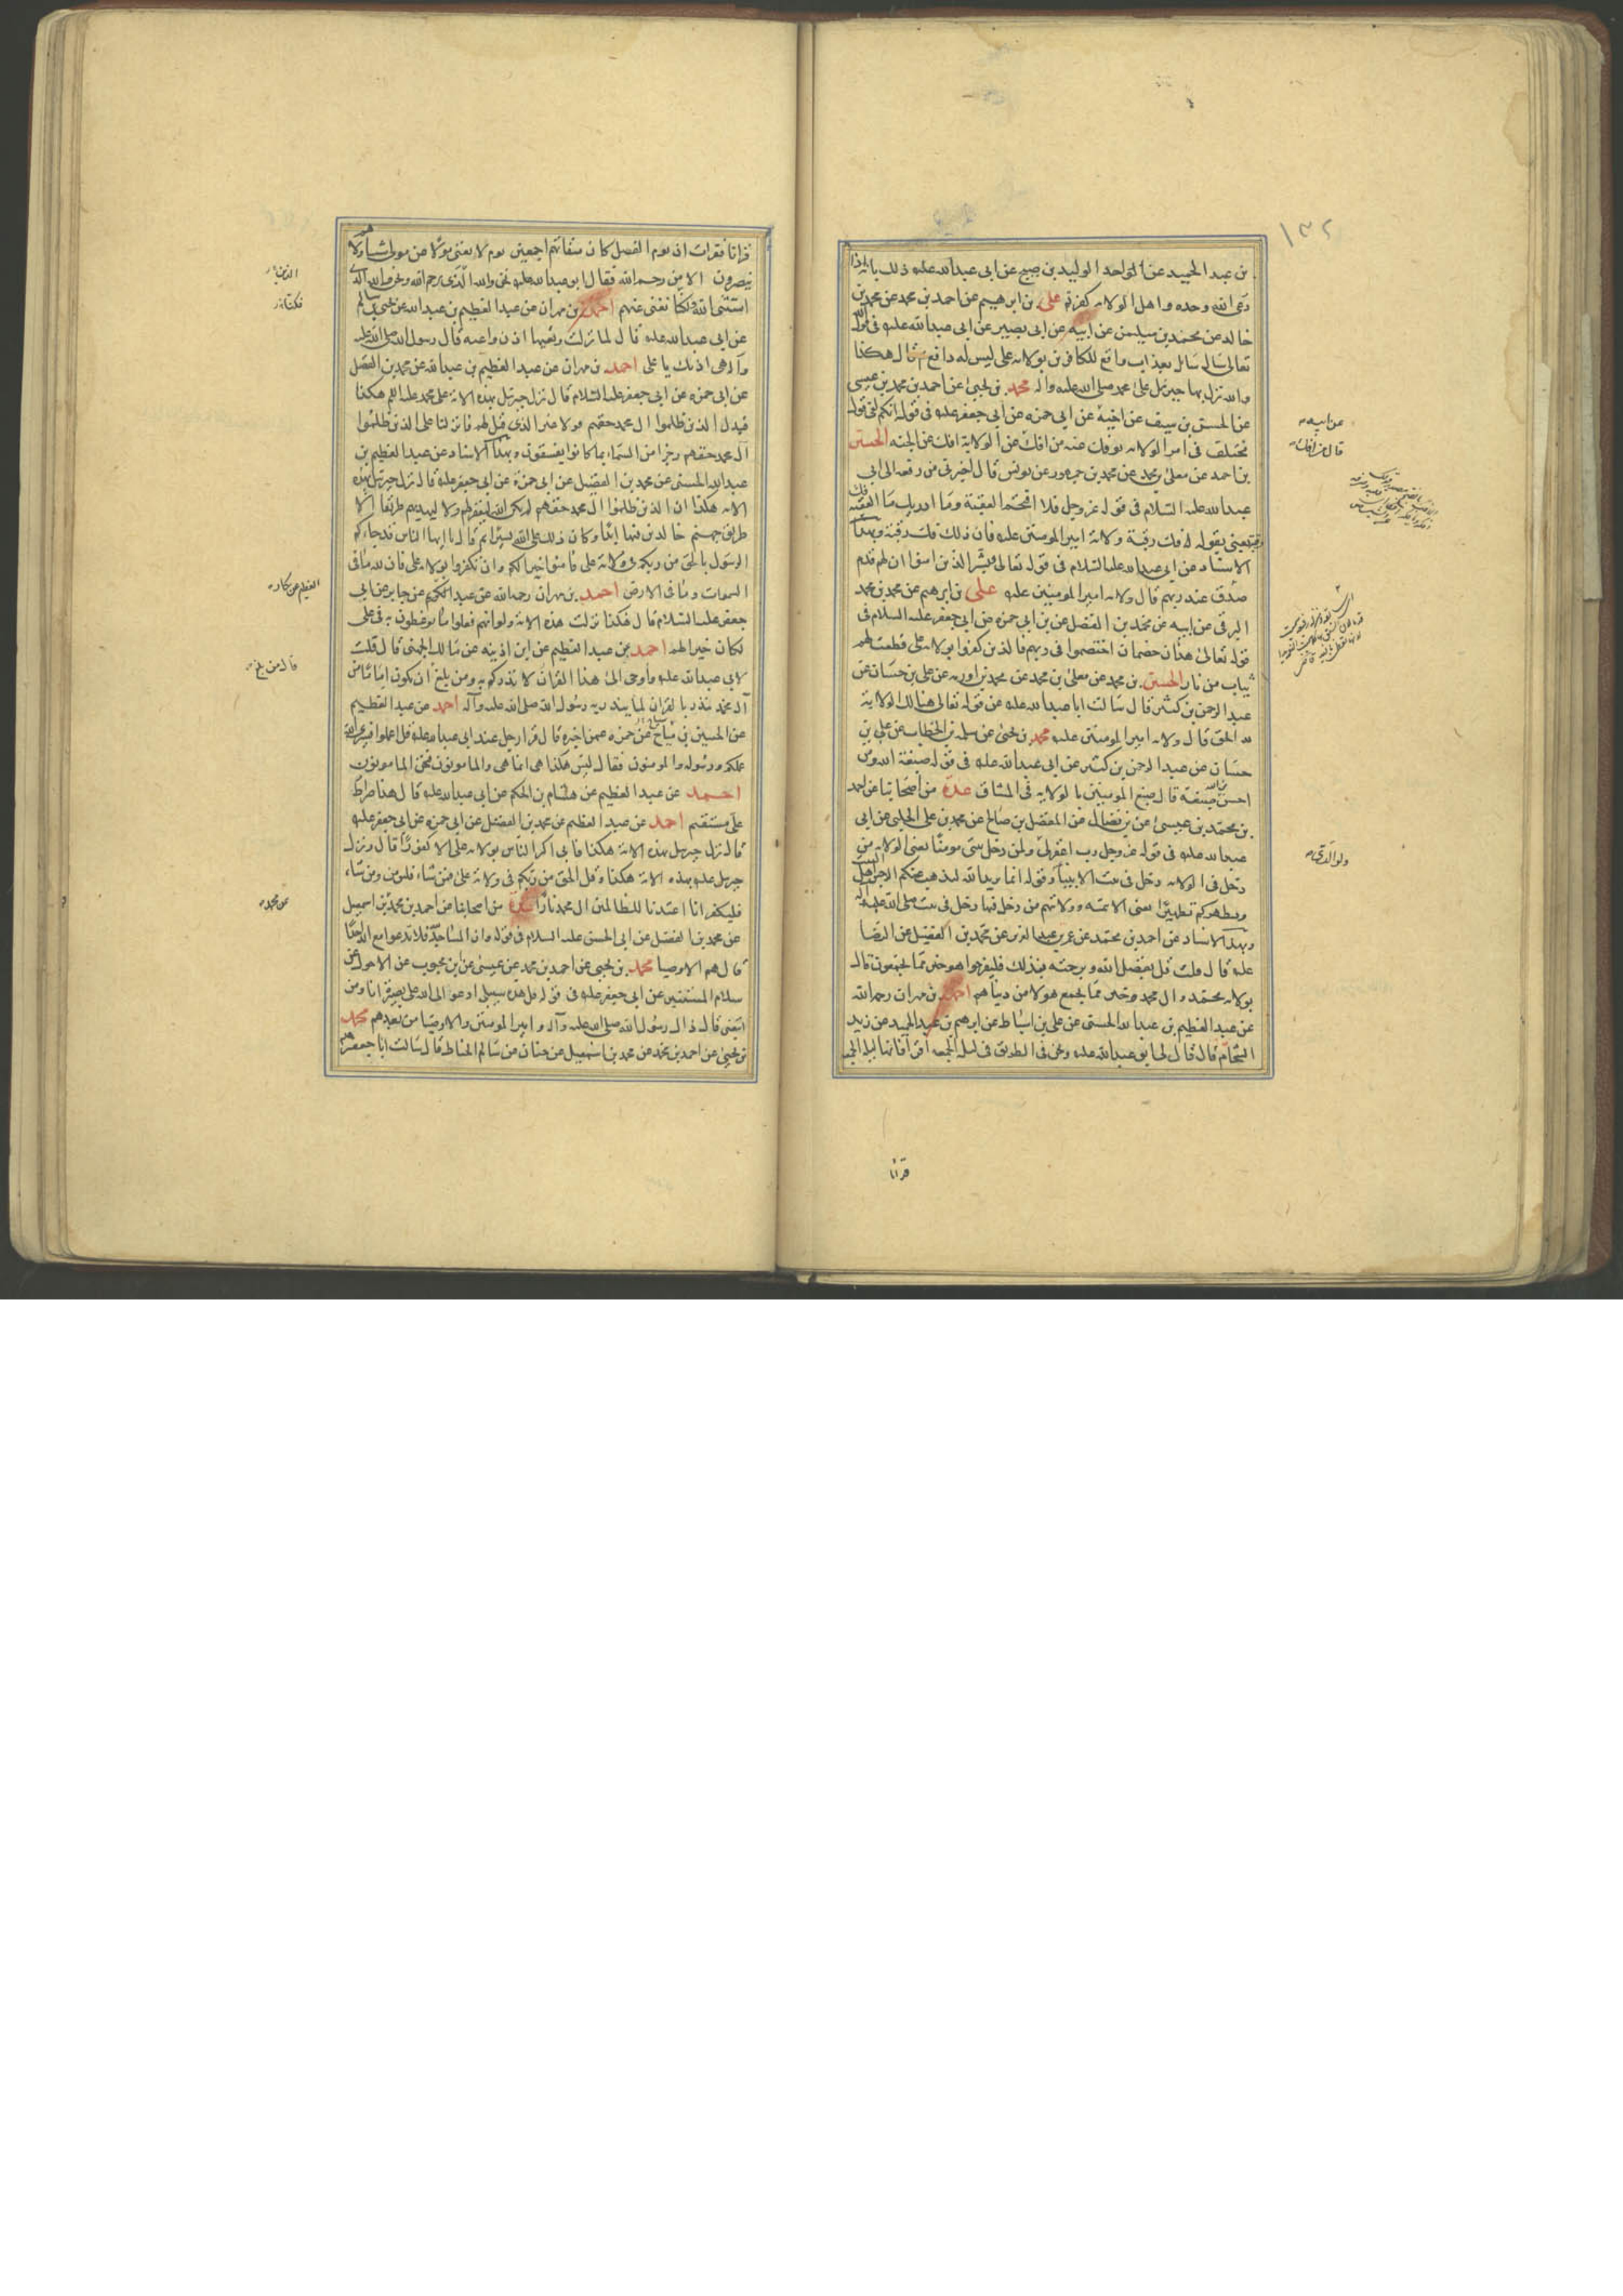 ١٣٢
بن عبد الحميد عن الواحد الوليد بن صبيح عن ابى عبدالله عليه ذلك بانه اذا
دعى الله وحده واهل الولايه كفرتم على بن ابرهيم عن احمد بن محمد عن محمد بن
خالد عن محمد بن سليمن عن ابيه عن ابى بصير عن ابى عبدالله عليه فى قوله
تعالى سال سائل بعذاب واقع للكافرين بولايه على ليس له دافع ثم قال هكذا
والله نزل بها جبرئيل على محمد صلى الله عليه واله محمد بن يحيى عن احمد بن محمد بن عيسى
عن الحسن بن سيف عن اخيه عن ابى حمزه عن ابى جعفر عليه فى قوله انكم لفى قول
مختلف فى امر الولايه يوفك عنه من افك عن الولاية افك عن الجنه الحسين
بن احمد عن معلى بن محمد عن محمد بن جمهور عن يونس قال اخبرنى من رفعه الى ابى
عبدالله عليه السلام فى قوله عز وجل فلا اقتحم العقبة وما ادريك ما العقبه فك
رقبه يعنى بقوله فك رقبة ولاية امير المومنين عليه فان ذلك فك رقبة وبهذا
الاسناد عن ابى عبدالله عليه السلام فى قوله تعالى بشر الذين امنوا ان لهم قدم
صدق عند ربهم قال ولايه امير المومنين عليه على بن ابرهيم عن محمد بن محمد
البرقى عن ابيه عن محمد بن الفضيل عن بن ابى حمزه عن ابى جعفر عليه السلام فى
قوله تعالى هذان خصمان اختصموا فى ربهم فالذين كفروا بولايه على قطعت لهم
ثياب من نار الحسين بن محمد عن معلى بن محمد عن محمد بن اورمه عن على بن حسان عن
عبد الرحمن بن كثير قال سالت ابا عبدالله عليه عن قوله تعالى هنالك الولاية
لله الحق قال ولايه امير المومنين عليه محمد بن يحيى عن سلمه بن الخطاب عن على بن
حسان عن عبد الرحمن بن كثير عن ابى عبدالله عليه فى قوله صبغة الله ومن
احسن من الله صبغة قال صبغ المومنين بالولايه فى الميثاق عدة من اصحابنا عن احمد
بن محمد بن عيسى عن بن فضال عن المفضل بن صالح عن محمد بن على الحلبى عن ابى
عبدالله عليه فى قوله عز وجل رب اغفر لى ولمن دخل بيتى مومنا يعنى الولايه من
دخل فى الولايه دخل فى بيت الانبياء وقوله انما يريد الله ليذهب عنكم الرجس اهل البيت
ويطهركم تطهيرا يعنى الائمه وولايتهم من دخل فيها دخل فى بيت صلى الله عليه واله
وبهذا الاسناد عن احمد بن محمد عن عمر بن عبد العزيز عن محمد بن الفضيل عن الرضا
عليه قال قلت قل بفضل الله وبرحمته فبذلك فليفرحوا هو خير مما يجمعون قال
بولايه محمد وال محمد وخير مما يجمع هولا من دنياهم احمد بن مهران رحمه الله
عن عبد العظيم بن عبدالله الحسنى عن على بن اسباط عن ابرهيم بن عبد الحميد عن زيد
الشحام قال قال لى ابو عبدالله عليه ونحن فى الطريق فى ليله الجمعه اقرا فانها ليله الجمعه
عن ابيه
ولوالدى
قرانا
قرانا فقرات ان يوم الفصل كان ميقاتهم اجمعين يوم لا يغنى مولا عن مولى شيئا ولا هم
ينصرون الا من رحم الله فقال ابو عبدالله عليه نحن والله الذى رحم الله ونحن والله الذى
استثنى الله ولكنا نغنى عنهم احمد بن مهران عن عبد العظيم بن عبدالله عن يحيى بن سالم
عن ابى عبدالله عليه قال لما نزلت وتعيها اذن واعيه قال رسول الله صلى الله عليه
وآله هى اذنك يا على احمد بن مهران عن عبد العظيم بن عبدالله عن محمد بن الفضيل
عن ابى حمزه عن ابى جعفر عليه السلام قال نزل جبرئيل بهذه الاية على محمد عليه السلم هكذا
فبدل الذين ظلموا ال محمد حقهم قولا غير الذى قيل لهم فانزلنا على الذين ظلموا
آل محمد حقهم رجزا من السماء بما كانوا يفسقون وبهذا الاسناد عن عبد العظيم بن
عبدالله الحسنى عن محمد بن الفضيل عن ابى حمزة عن ابى جعفر عليه قال نزل جبرئيل بهذه
الايه هكذا ان الذين ظلموا ال محمد حقهم لم يكن الله ليغفر لهم ولا ليهديهم طريقا الا
طريق جهنم خالدين فيها ابدا وكان ذلك على الله يسيرا ثم قال يا ايها الناس قد جاءكم
الرسول بالحق من ربكم فى ولاية على فامنوا خيرا لكم وان تكفروا بولايه على فان لله ما فى
السموات وما فى الارض احمد بن مهران رحمه الله عن عبد العظيم عن جابر عن ابى
جعفر عليه السلام قال هكذا نزلت هذه الاية ولو انهم فعلوا ما يوعظون به فى على
لكان خيرا لهم احمد بن عبد العظيم عن ابن اذينه عن مالك الجهنى قال قلت
لابى عبدالله عليه واوحى الى هذا القران لانذركم به ومن بلغ ان يكون اماما من
آل محمد ينذر بالقران لما ينذر به رسول الله صلى الله عليه وآله احمد عن عبد العظيم
عن الحسين بن مياح عن حمزه عمن اخبره قال قرا رجل عند ابى عبدالله عليه قل اعملوا فسيرى الله
عملكم ورسوله والمومنون فقال ليس هكذا هى انما هى والمامونون فنحن المامونون
احمد عن عبد العظيم عن هشام بن الحكم عن ابى عبدالله عليه قال هذا صراط
على مستقيم احمد عن عبد العظيم عن محمد بن الفضيل عن ابى حمزه عن ابى جعفر عليه
قال نزل جبرئيل بهذه الاية هكذا فابى اكثر الناس بولايه على الا كفورا قال ونزل
جبرئيل عليه بهذه الاية هكذا وقل الحق من ربكم فى ولاية على فمن شاء فليومن ومن شاء
فليكفر انا اعتدنا للظالمين ال محمد نارا عدة من اصحابنا عن احمد بن محمد بن اسمعيل
عن محمد بن الفضيل عن ابى الحسن عليه السلام فى قوله وان المساجد لله فلا تدعوا مع الله احدا
قال هم الاوصيا محمد بن يحيى عن احمد بن محمد عن عيسى عن بن محبوب عن الاحول عن
سلام المستنير عن ابى جعفر عليه فى قوله قل هذه سبيلى ادعو الى الله على بصيرة انا ومن
اتبعنى قال ذاك رسول الله صلى الله عليه وآله وامير المومنين والاوصيا من بعدهم محمد
بن يحيى عن احمد بن محمد عن محمد بن اسمعيل عن حنان عن سالم الحناط قال سالت ابا جعفر
قال من بلغ
عن محمد